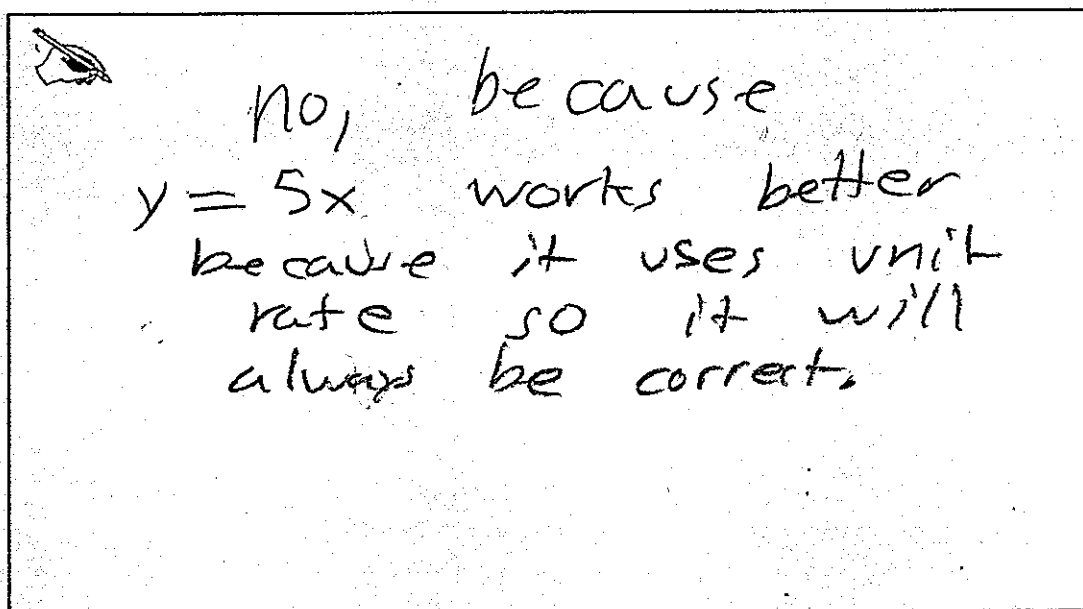 no, because
y = 5x works better
because it uses unit
rate so it will
always be correct.